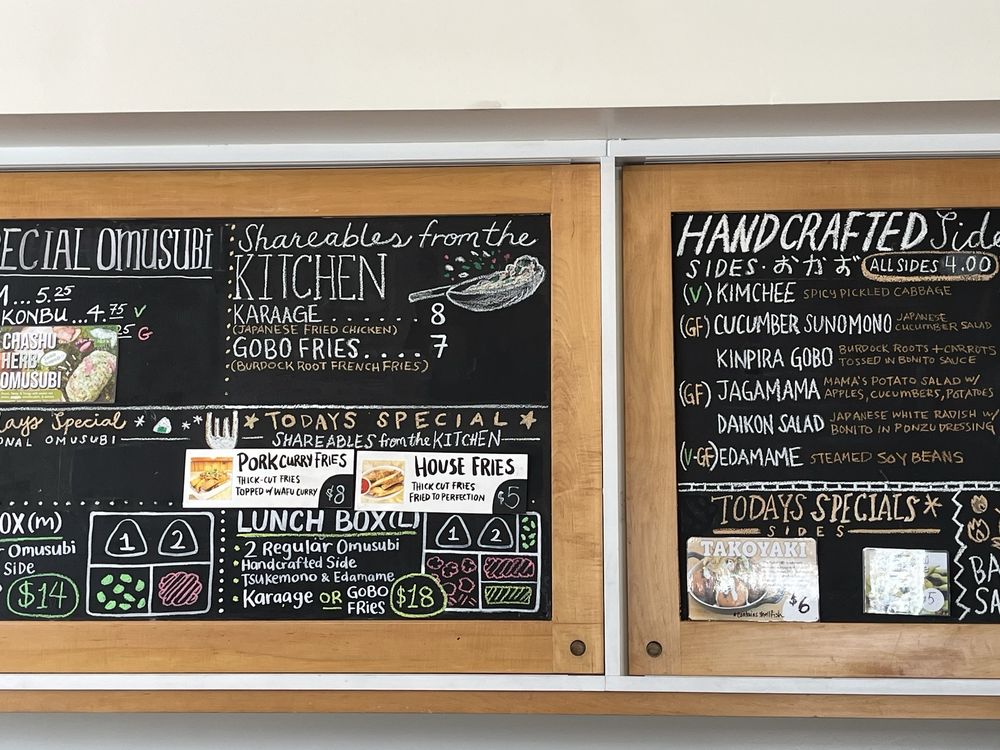 ECIAL OMUSUBI
M...5.25
KONBU...4.75 V
G
CHASHU
HERB
OMUSUBI
ays Special
ONAL OMUSUBI
OX(m)
Omusubi
Side
$14
1 2
Shareables from the
KITCHEN
KARAAGE....... 8
(JAPANESE FRIED CHICKEN)
GOBO FRIES.... 7
(BURDOCK ROOT FRENCH FRIES)
TODAYS SPECIAL
SHAREABLES from the KITCHEN
PORK CURRY FRIES
THICK-CUT FRIES
TOPPED w/ WAFU CURRY
$8
HOUSE FRIES
THICK CUT FRIES
FRIED TO PERFECTION
$5
LUNCH BOX(L)
2 Regular Omusubi
Handcrafted Side
Tsukemono & Edamame
Karaage OR GOBO
FRIES
$18
1 2
HANDCRAFTED Side
SIDES・おかず ALL SIDES 4.00
(V) KIMCHEE SPICY PICKLED CABBAGE
(GF) CUCUMBER SUNOMONO JAPANESE
CUCUMBER SALAD
KINPIRA GOBO BURDOCK ROOTS + CARROTS
TOSSED IN BONITO SAUCE
(GF) JAGAMAMA MAMA'S POTATO SALAD W/
APPLES, CUCUMBERS, POTATOES
DAIKON SALAD JAPANESE WHITE RADISH W/
BONITO IN PONZU DRESSING
(V-GF) EDAMAME STEAMED SOY BEANS
TODAYS SPECIALS*
SIDES
TAKOYAKI
$6
*contains shellfish
5
BA
SA